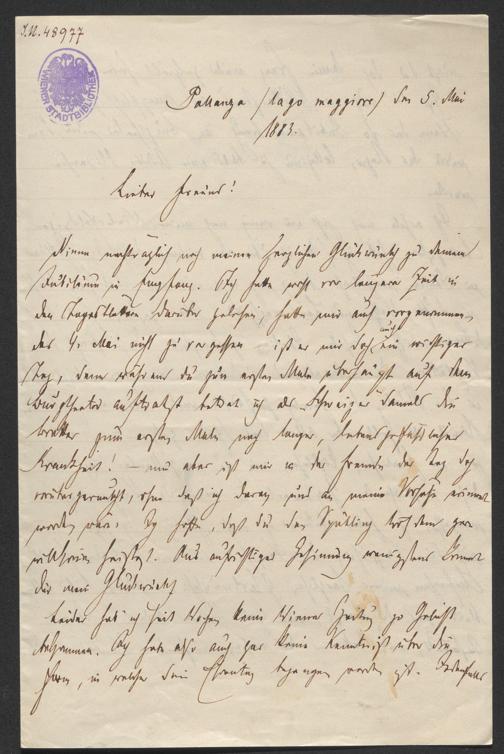 I.N. 48977
WIENER STADTBIBLIOTHEK
Pallanza (lago maggiore) den 5. Mai
1883.
Lieber Freund!
Nimm nachträglich noch meinen herzlichen Glückwunsch zu deinem
Jubiläum in Empfang. Ich hatte wohl vor längerer Zeit in
den Tagesblättern darüber gelesen, hatte mir auch vorgenommen,
des 4. Mai nicht zu vergessen ist er mir doch auch ein wichtiger
Tag, denn während du zum ersten Male überhaupt auf dem
Burgtheater auftratest betrat ich als Schweizer damals die
Bretter zum ersten Male nach langer, lebensgefährlicher
Krankheit! – nun aber ist mir in der Fremde der Tag doch
vorübergerauscht, ohne daß ich daran und an meine Vorsätze erinnert
worden wäre. Ich hoffe, daß du den Spätling trotzdem gern
willkommen heißest. Aus aufrichtiger Gesinnung wenigstens kommt
dir mein Glückwunsch
Leider hab ich seit Wochen keine Wiener Zeitung zu Gesicht
bekommen. Ich habe also auch gar keine Kenntniß über die
Form, in welcher dein Ehrentag begangen worden ist. Jedenfalls